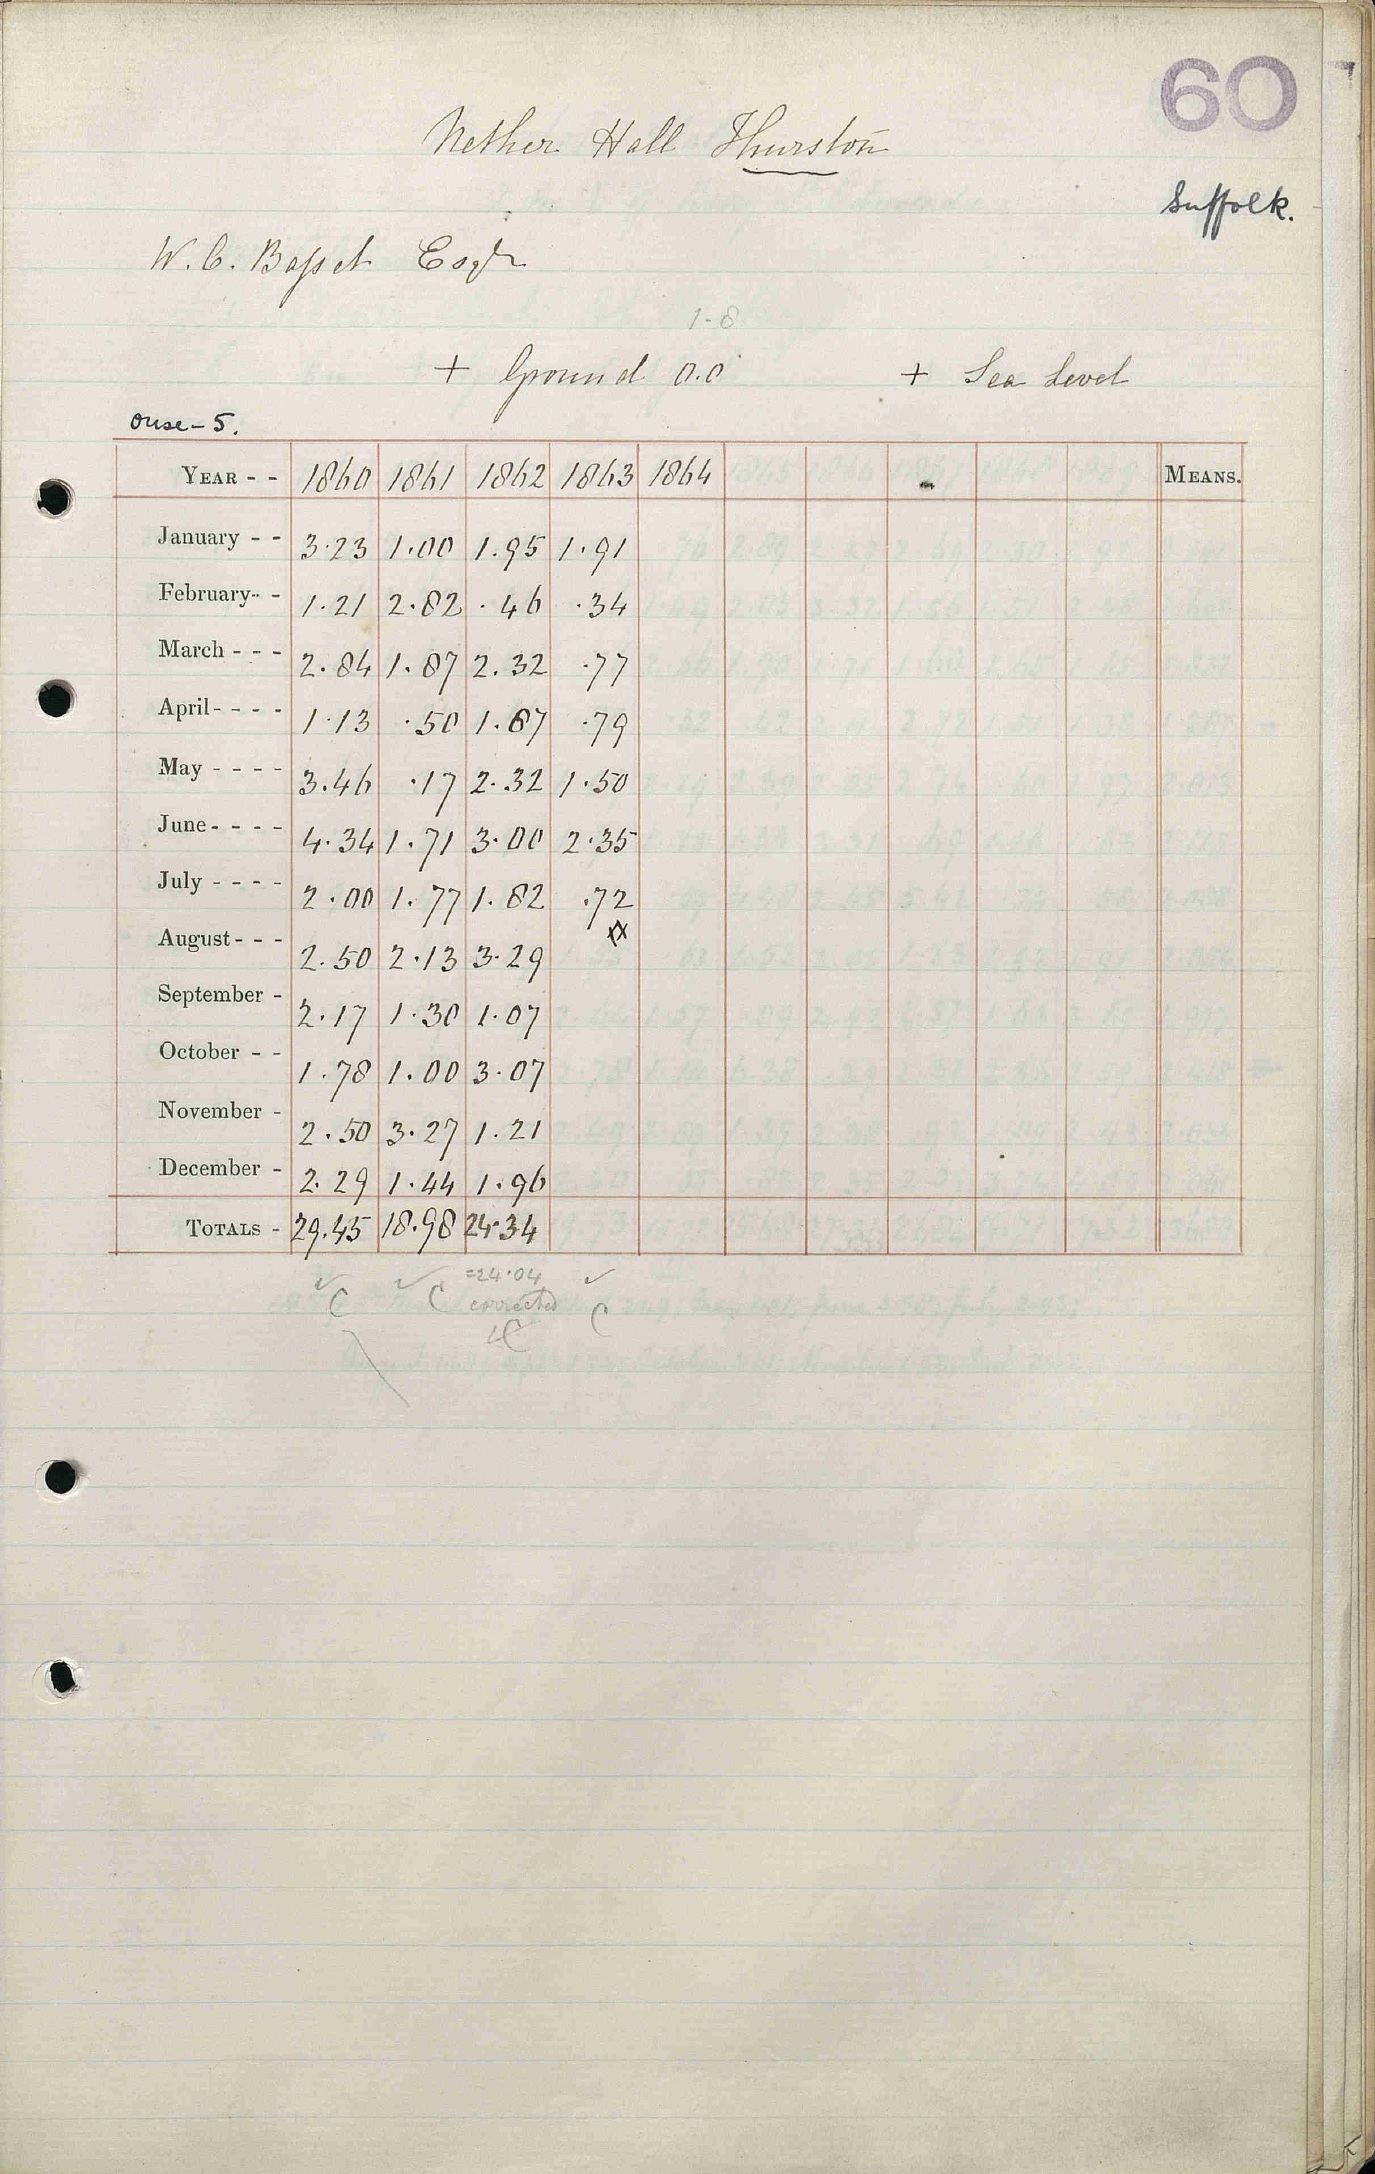 60
Nether Hall Thurston
Suffolk.
W. C. Basset Esqr
1-8
+ Ground 0.0 + Sea Level
Ouse - 5.
YEAR - - 1860 1861 1862 1863 1864 MEANS.
January - - 3.23 1.00 1.95 1.91
February - - 1.21 2.82 .46 .34
March - - - 2.84 1.87 2.32 .77
April - - - - 1.13 .50 1.87 .79
May - - - - 3.46 .17 2.32 1.50
June - - - - 4.34 1.71 3.00 2.35
July - - - - 2.00 1.77 1.82 .72
August - - - 2.50 2.13 3.29
September - 2.17 1.30 1.07
October - - 1.78 1.00 3.07
November - 2.50 3.27 1.21
December - 2.29 1.44 1.96
TOTALS - 29.45 18.98 24.34
=24.04
C C corrected C
C